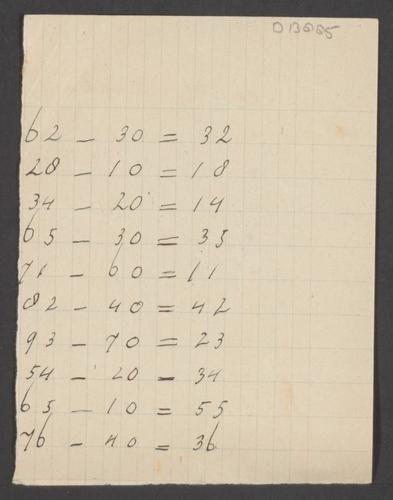 62 - 30 = 32
28 - 10 = 18
34 - 20 = 14
65 - 30 = 35
71 - 60 = 11
82 - 40 = 42
93 - 70 = 23
54 - 20 = 34
65 - 10 = 55
76 - 40 = 36